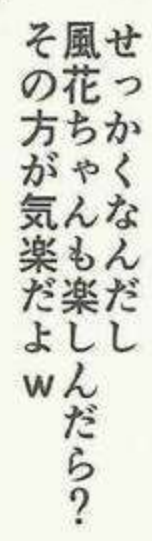 せっかくなんだし
風花ちゃんも楽しんだら？
その方が気楽だよw